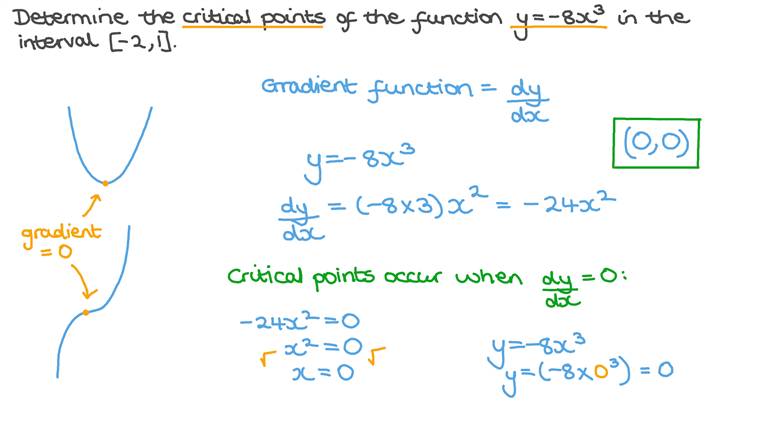 Determine the critical points of the function y=-8x³ in the
interval [-2,1].
Gradient function = dy/dx
(0,0)
y=-8x³
dy/dx = (-8×3)x² = -24x²
gradient
= 0
Critical points occur when dy/dx = 0:
-24x² = 0
√ x² = 0 √
x = 0
y=-8x³
y=(-8×0³) = 0